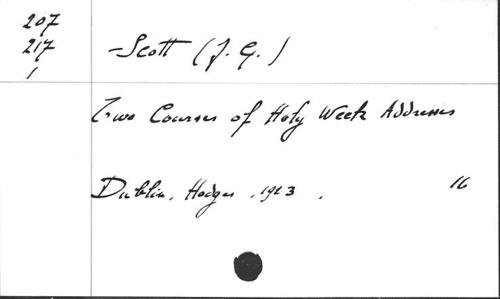 207
217
1
Scott (J. G.)
Two Courses of Holy Week Addresses
Dublin, Hodges, 1923. 16